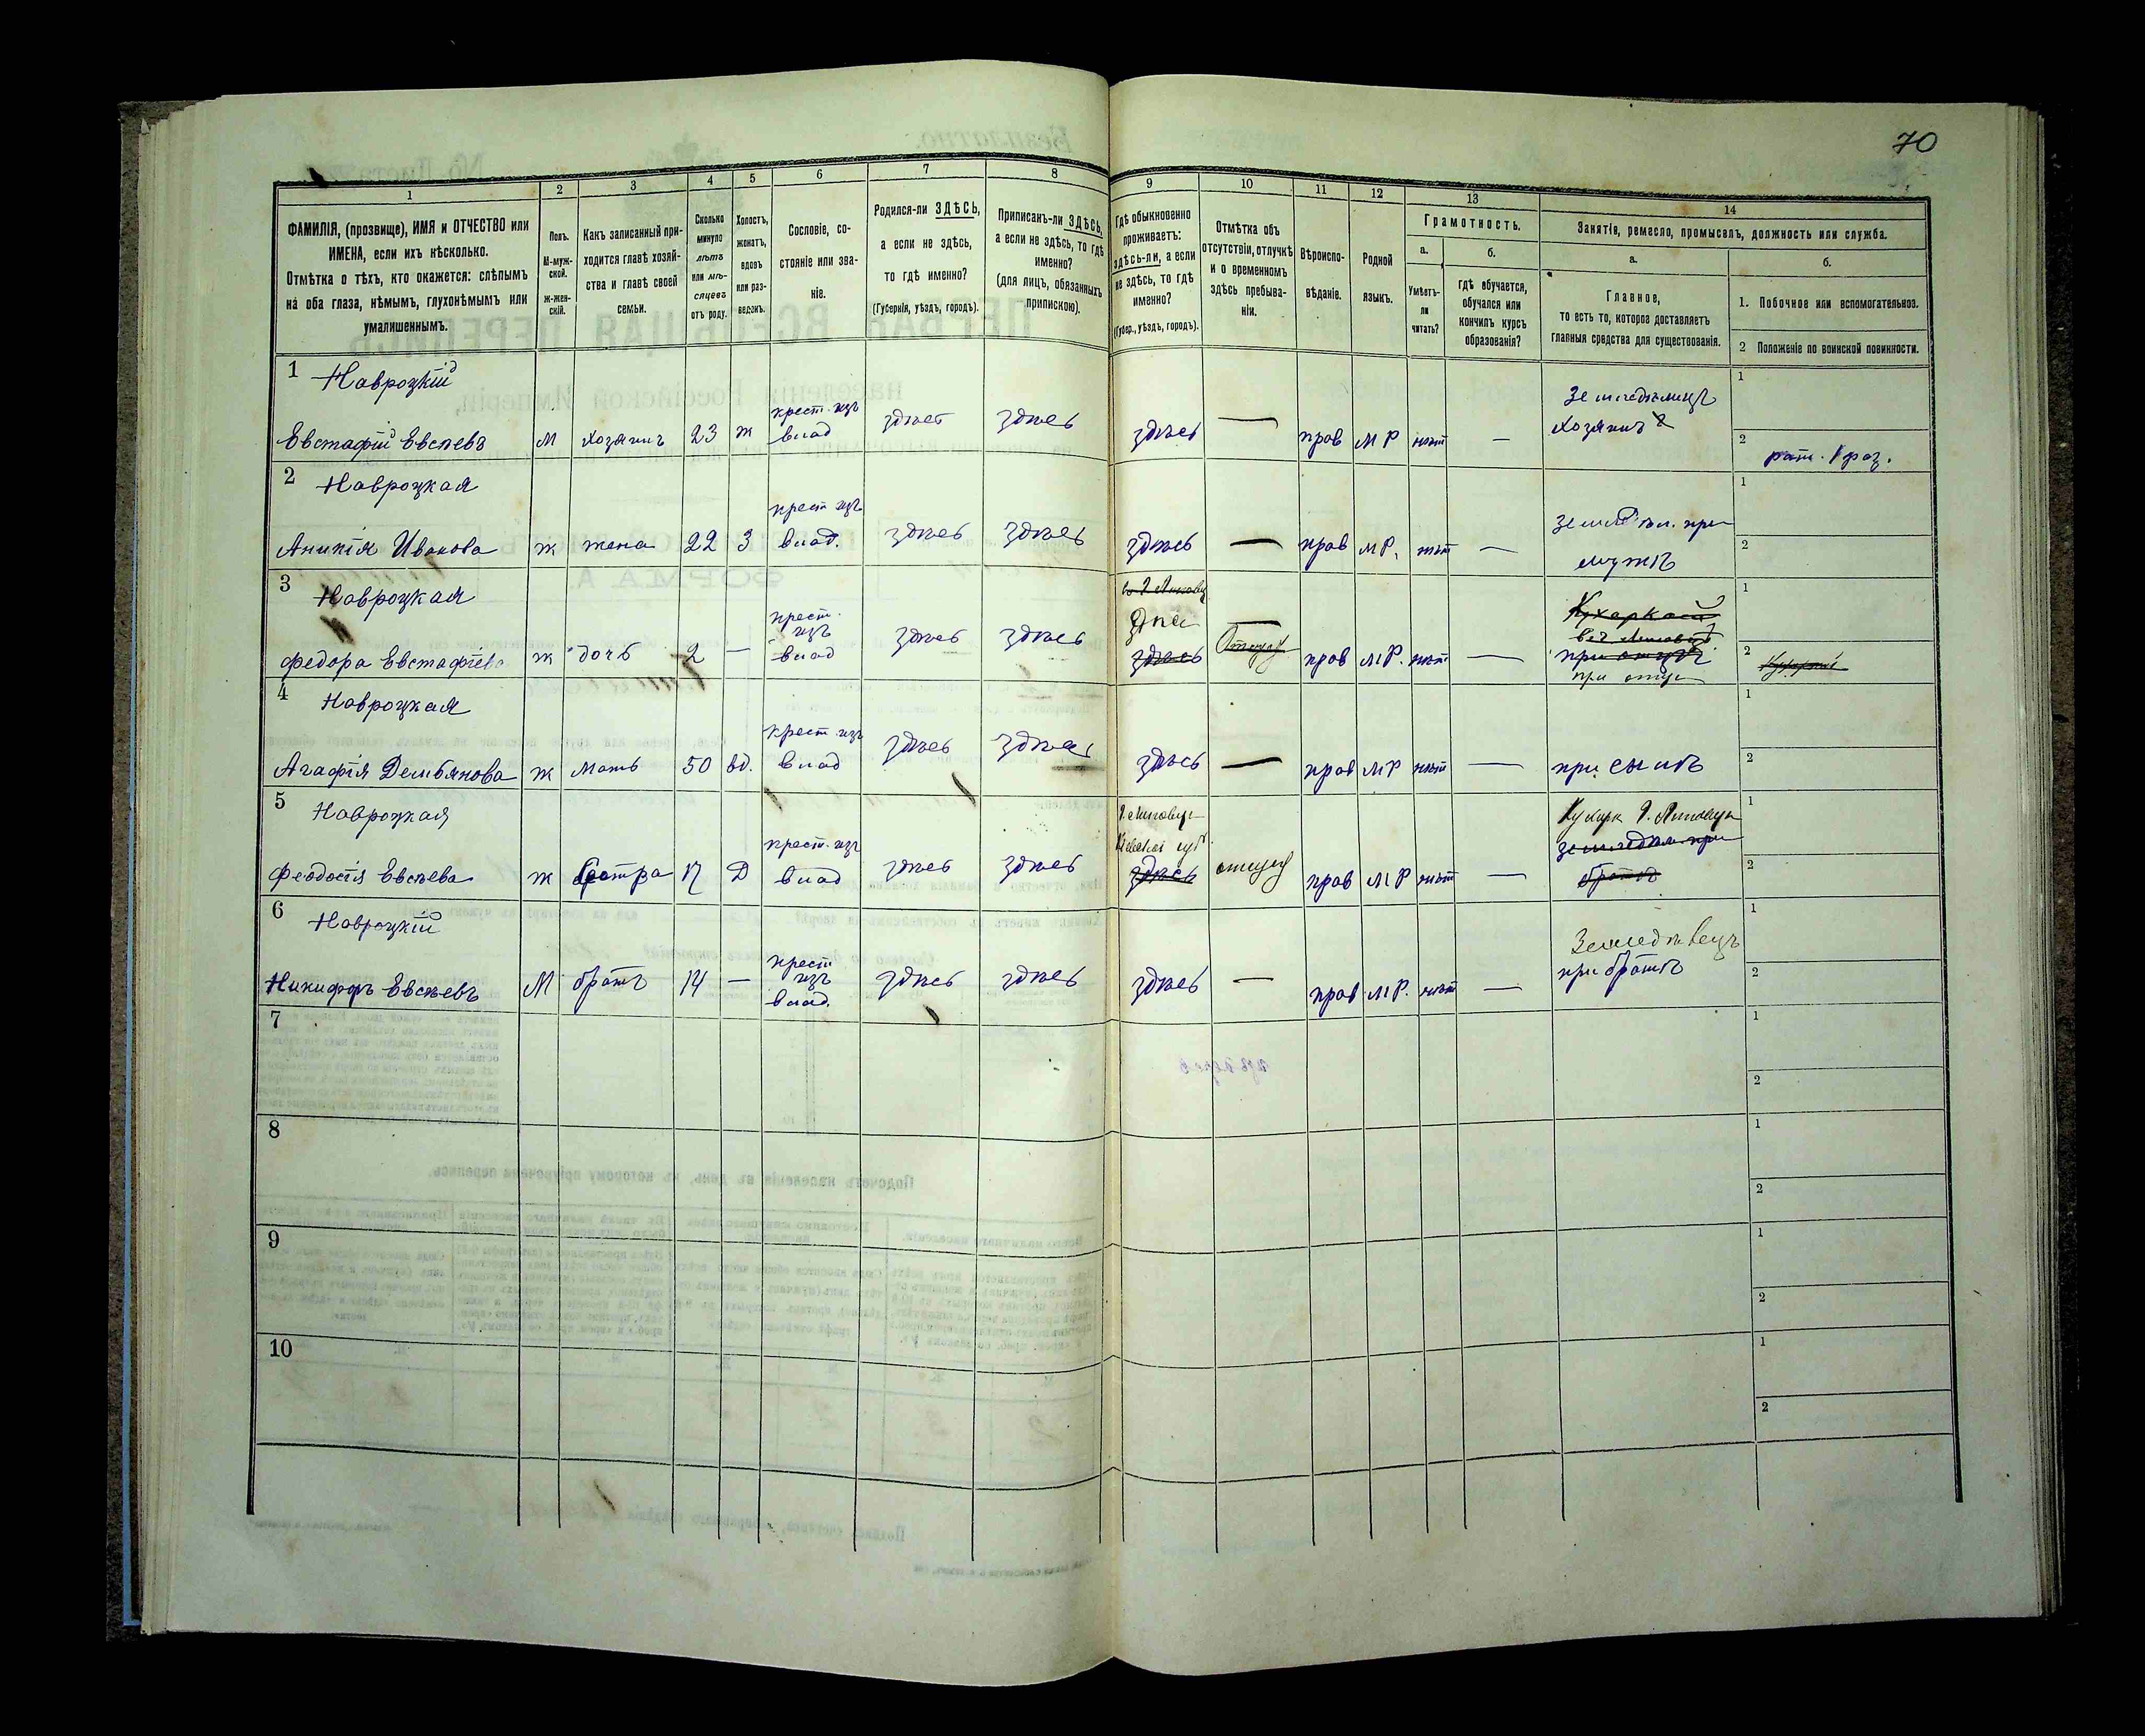 70
1
2
3
4
5
6
7
8
9
10
11
12
13
14
ФАМИЛІЯ, (прозвище), ИМЯ и ОТЧЕСТВО или
ИМЕНА, если ихъ нѣсколько.
Отмѣтка о тѣхъ, кто окажется: слѣпымъ
на оба глаза, нѣмымъ, глухонѣмымъ или
умалишеннымъ.
Полъ.
М-муж-
ской.
ж-жен-
скій.
Какъ записанный при-
ходится главѣ хозяй-
ства и главѣ своей
семьи.
Сколько
минуло
лѣтъ
или мѣ-
сяцевъ
отъ роду.
Холостъ,
женатъ,
вдовъ
или раз-
веденъ.
Сословіе, со-
стояніе или зва-
ніе.
Родился-ли ЗДѢСЬ,
а если не здѣсь,
то гдѣ именно?
(Губернія, уѣздъ, городъ).
Приписанъ-ли ЗДѢСЬ,
а если не здѣсь, то гдѣ
именно?
(для лицъ, обязанныхъ
припискою).
Гдѣ обыкновенно
проживаетъ:
здѣсь-ли, а если
не здѣсь, то гдѣ
именно?
(Губер., уѣздъ, городъ).
Отмѣтка объ
отсутствіи, отлучкѣ
и о временномъ
здѣсь пребыва-
ніи.
Вѣроиспо-
вѣданіе.
Родной
языкъ.
Грамотность.
а.
б.
Умѣетъ-
ли
читать?
гдѣ обучается,
обучался или
кончилъ курсъ
образованія?
Занятіе, ремесло, промыселъ, должность или служба.
а.
б.
Главное,
то есть то, которое доставляетъ
главныя средства для существованія.
1. Побочное или вспомогательное.
2 Положеніе по воинской повинности.
1 Навроцкій
Евстафій Евсѣевъ м хозяинъ 23 ж крест. изъ влад здѣсь здѣсь здѣсь — прав МР нѣт —
Хозяинъ
1
2 рат. 1 раз.
2 Навроцкая
Ивакова ж жена 22 З крест изъ влад. здѣсь здѣсь здѣсь — прав МР. нѣт —
при
мужѣ
1
2
3 Навроцкая
Федора Евстафіева ж дочь 2 — крест. изъ влад здѣсь здѣсь здѣсь прав МР. нѣт —
Кухаркой
при отцѣ
при отцѣ
1
2
4 Навроцкая
Агафія Демьянова ж мать 50 вд. крест изъ влад здѣсь здѣсь здѣсь — прав МР нѣт — при сынѣ
1
2
5 Навроцкая
Феодосія Евсѣева ж сестра 17 Д крест. изъ влад здѣсь здѣсь здѣсь прав МР нѣт —
при
братѣ
1
2
6 Навроцкій
Никифоръ Евсѣевъ М братъ 14 — крест изъ влад. здѣсь здѣсь здѣсь — прав МР. нѣт —
при братѣ
1
2
7
1
2
8
1
2
9
1
2
10
1
2